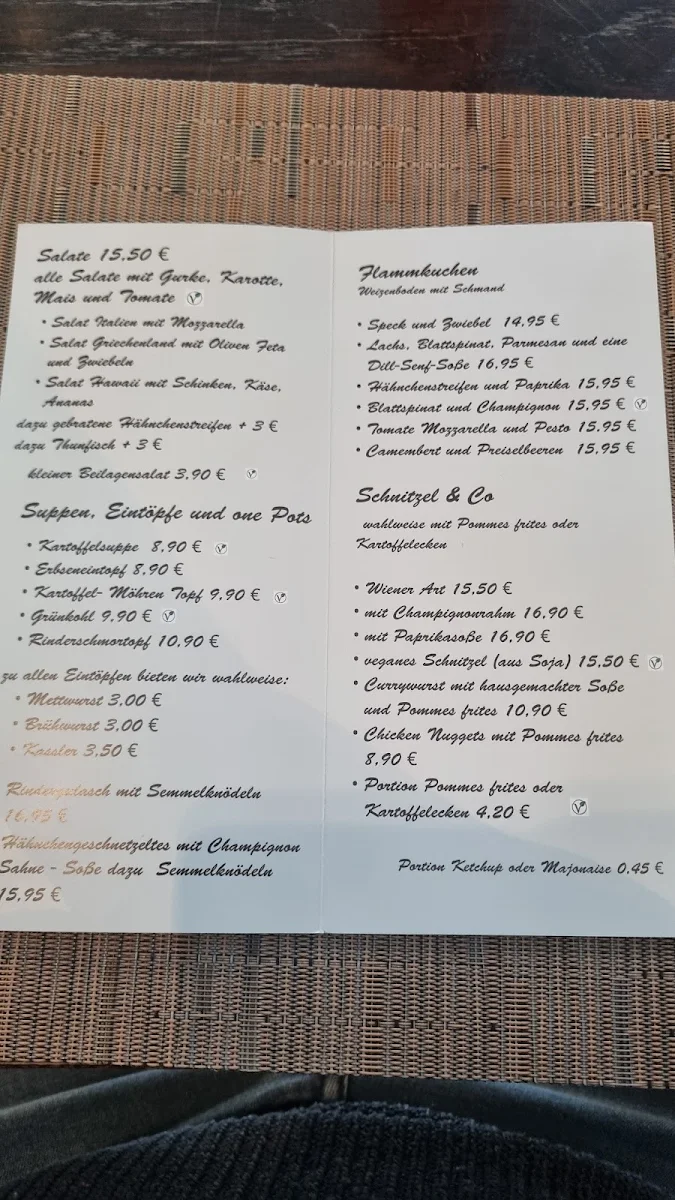 Salate 15,50 €
alle Salate mit Gurke, Karotte,
Mais und Tomate
• Salat Italien mit Mozzarella
• Salat Griechenland mit Oliven Feta
und Zwiebeln
• Salat Hawaii mit Schinken, Käse,
Ananas
dazu gebratene Hähnchenstreifen + 3 €
dazu Thunfisch + 3 €
kleiner Beilagensalat 3,90 €
Suppen, Eintöpfe und one Pots
• Kartoffelsuppe 8,90 €
• Erbseneintopf 8,90 €
• Kartoffel- Möhren Topf 9,90 €
• Grünkohl 9,90 €
• Rinderschmortopf 10,90 €
zu allen Eintöpfen bieten wir wahlweise:
• Mettwurst 3,00 €
• Brühwurst 3,00 €
• Kassler 3,50 €
Rindergulasch mit Semmelknödeln
16,95 €
Hähnchengeschnetzeltes mit Champignon
Sahne - Soße dazu Semmelknödeln
15,95 €
Flammkuchen
Weizenboden mit Schmand
• Speck und Zwiebel 14,95 €
• Lachs, Blattspinat, Parmesan und eine
Dill-Senf-Soße 16,95 €
• Hähnchenstreifen und Paprika 15,95 €
• Blattspinat und Champignon 15,95 €
• Tomate Mozzarella und Pesto 15,95 €
• Camembert und Preiselbeeren 15,95 €
Schnitzel & Co
wahlweise mit Pommes frites oder
Kartoffelecken
• Wiener Art 15,50 €
• mit Champignonrahm 16,90 €
• mit Paprikasoße 16,90 €
• veganes Schnitzel (aus Soja) 15,50 €
• Currywurst mit hausgemachter Soße
und Pommes frites 10,90 €
• Chicken Nuggets mit Pommes frites
8,90 €
• Portion Pommes frites oder
Kartoffelecken 4,20 €
Portion Ketchup oder Majonaise 0,45 €